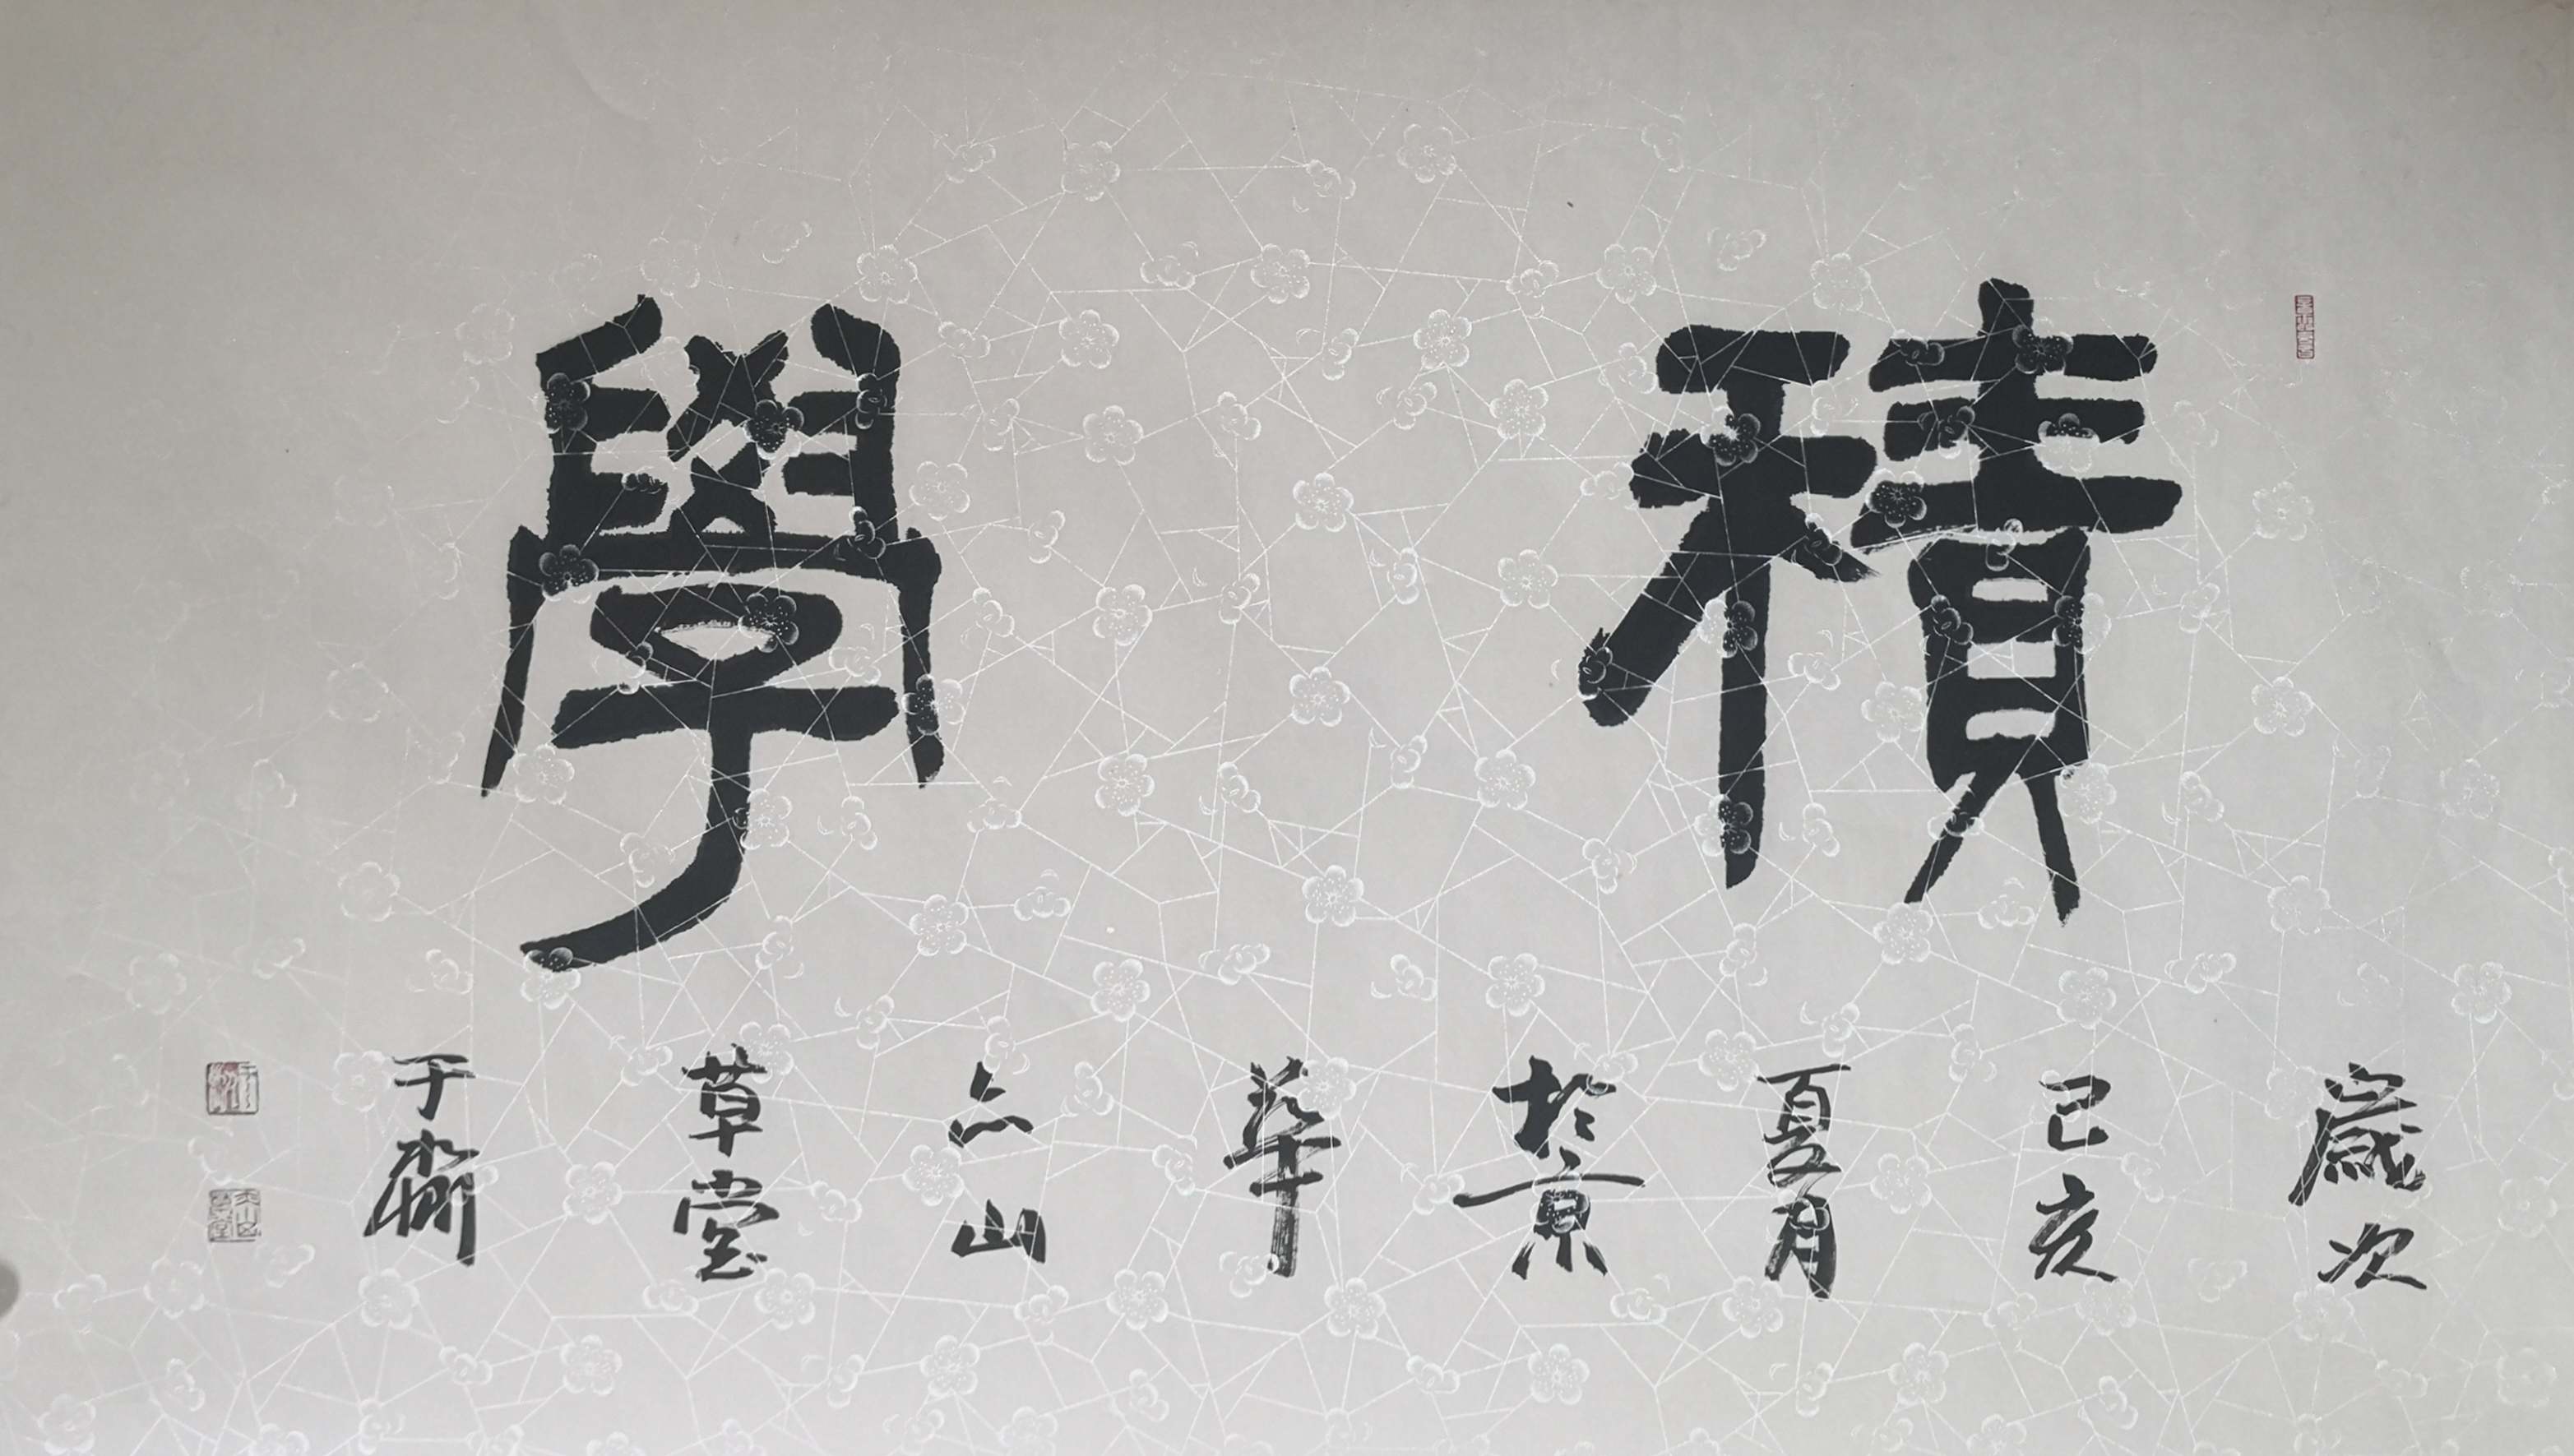 積學
歲次
己亥
夏月
於京
華
六山
草堂
于齋